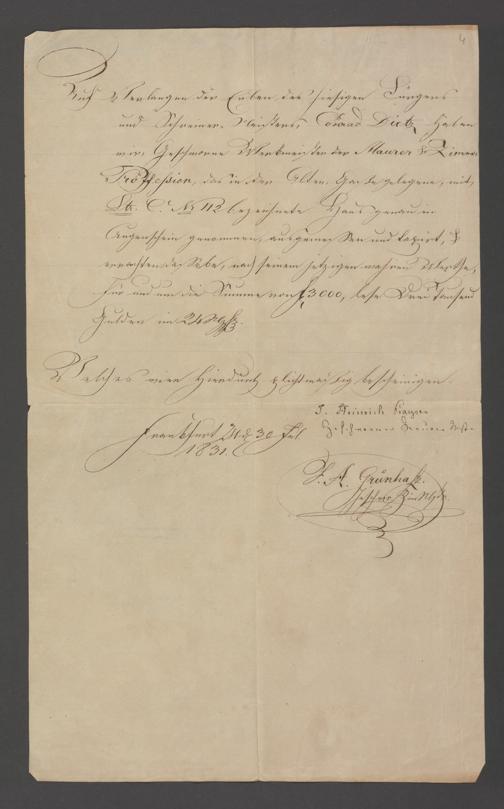 4
Auf Verlangen der Erben des hiesigen Bürgers
und Schreiner-Meisters, Conrad Dietz, haben
wir Geschworne Werkmeister der Maurer & Zimer
Profession, das in der Alten Gasse gelegene, mit
Lit. C. No 112 bezeichnete Haus genau in
Augenschein genommen, ausgemessen und taxirt, &
erachten dasselbe, nach seinem jetzigen wahren Werthe,
für und um die Summe von f 3000, lese Drei Tausend
Gulden im 24
Welches wir hierdurch pflichtmäsig bescheinigen.
Frankfurt d. 30
1831.
J. Heinrich Kayser
Geschworner Maurer Mstr
J. A. Grünha
Geschwor